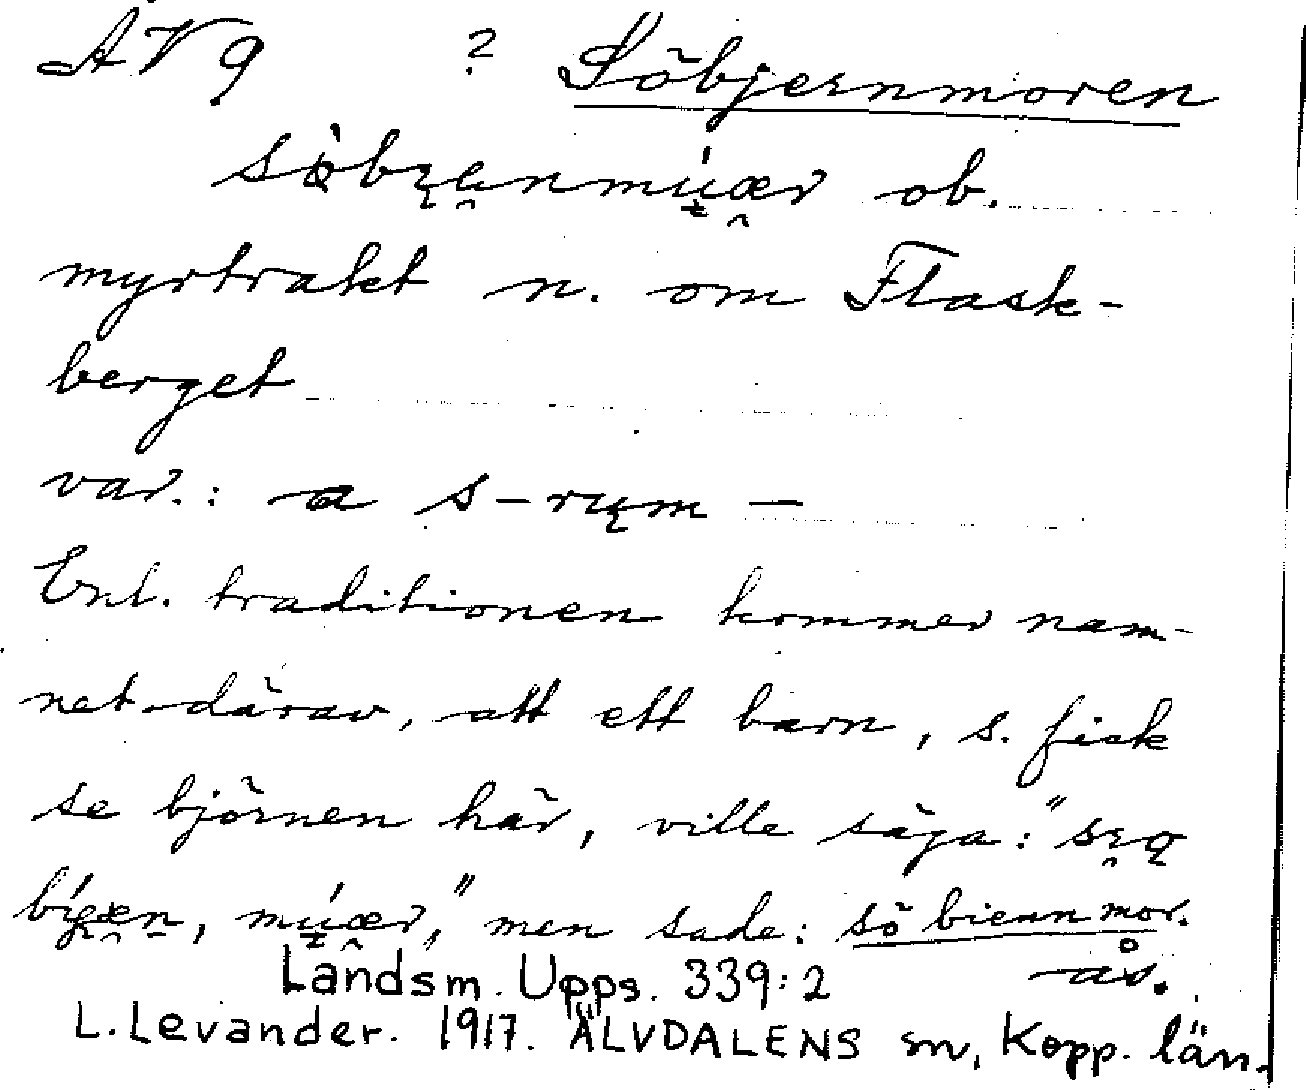 ÄV 9 ? Söbjernmoren
ob.
myrtrakt n. om Flask-
berget
var.: a s-rum –
Enl. traditionen kommer nam-
net därav, att ett barn, s. fick
se björnen här, ville säga: "
men sade: sö bienn mor.
ås.
Landsm. Upps. 339:2
L. Levander. 1917. ÄLVDALENS sn, Kopp. län.